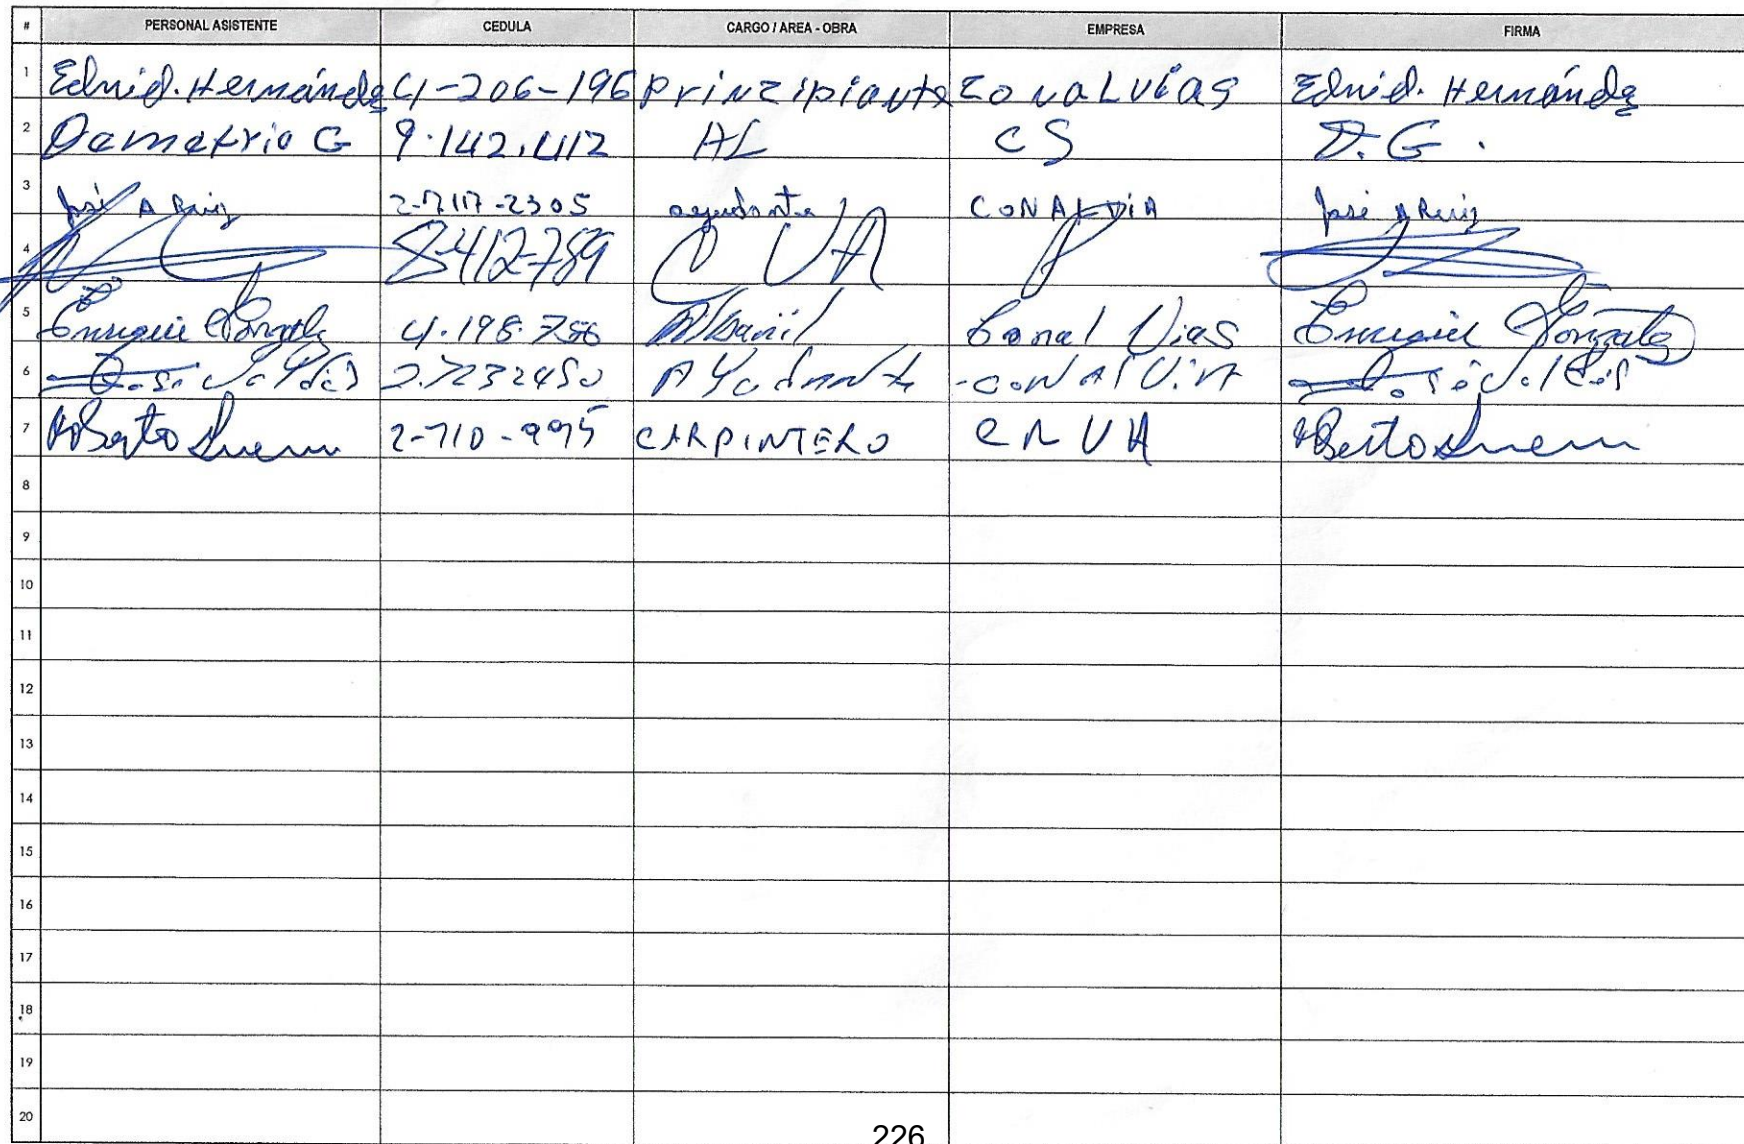 # PERSONAL ASISTENTE CEDULA CARGO / AREA - OBRA EMPRESA FIRMA
1 Ednid. Hernández 4-206-196 Prinzipiante ZonaLvías Ednid. Hernández
2 Demetrio G 9.142.412 AL CS D.G.
3 José A Ruiz 2-717-2305 ayudante CONALVIA José A Ruiz
4 8-412-789
5 Enrique González 4.198.786 Albañil Conal Vias Enrique González
6 2.7232450 CONALVIA
7 2-710-995 CARPINTERO CNVA
8
9
10
11
12
13
14
15
16
17
18
19
20
226